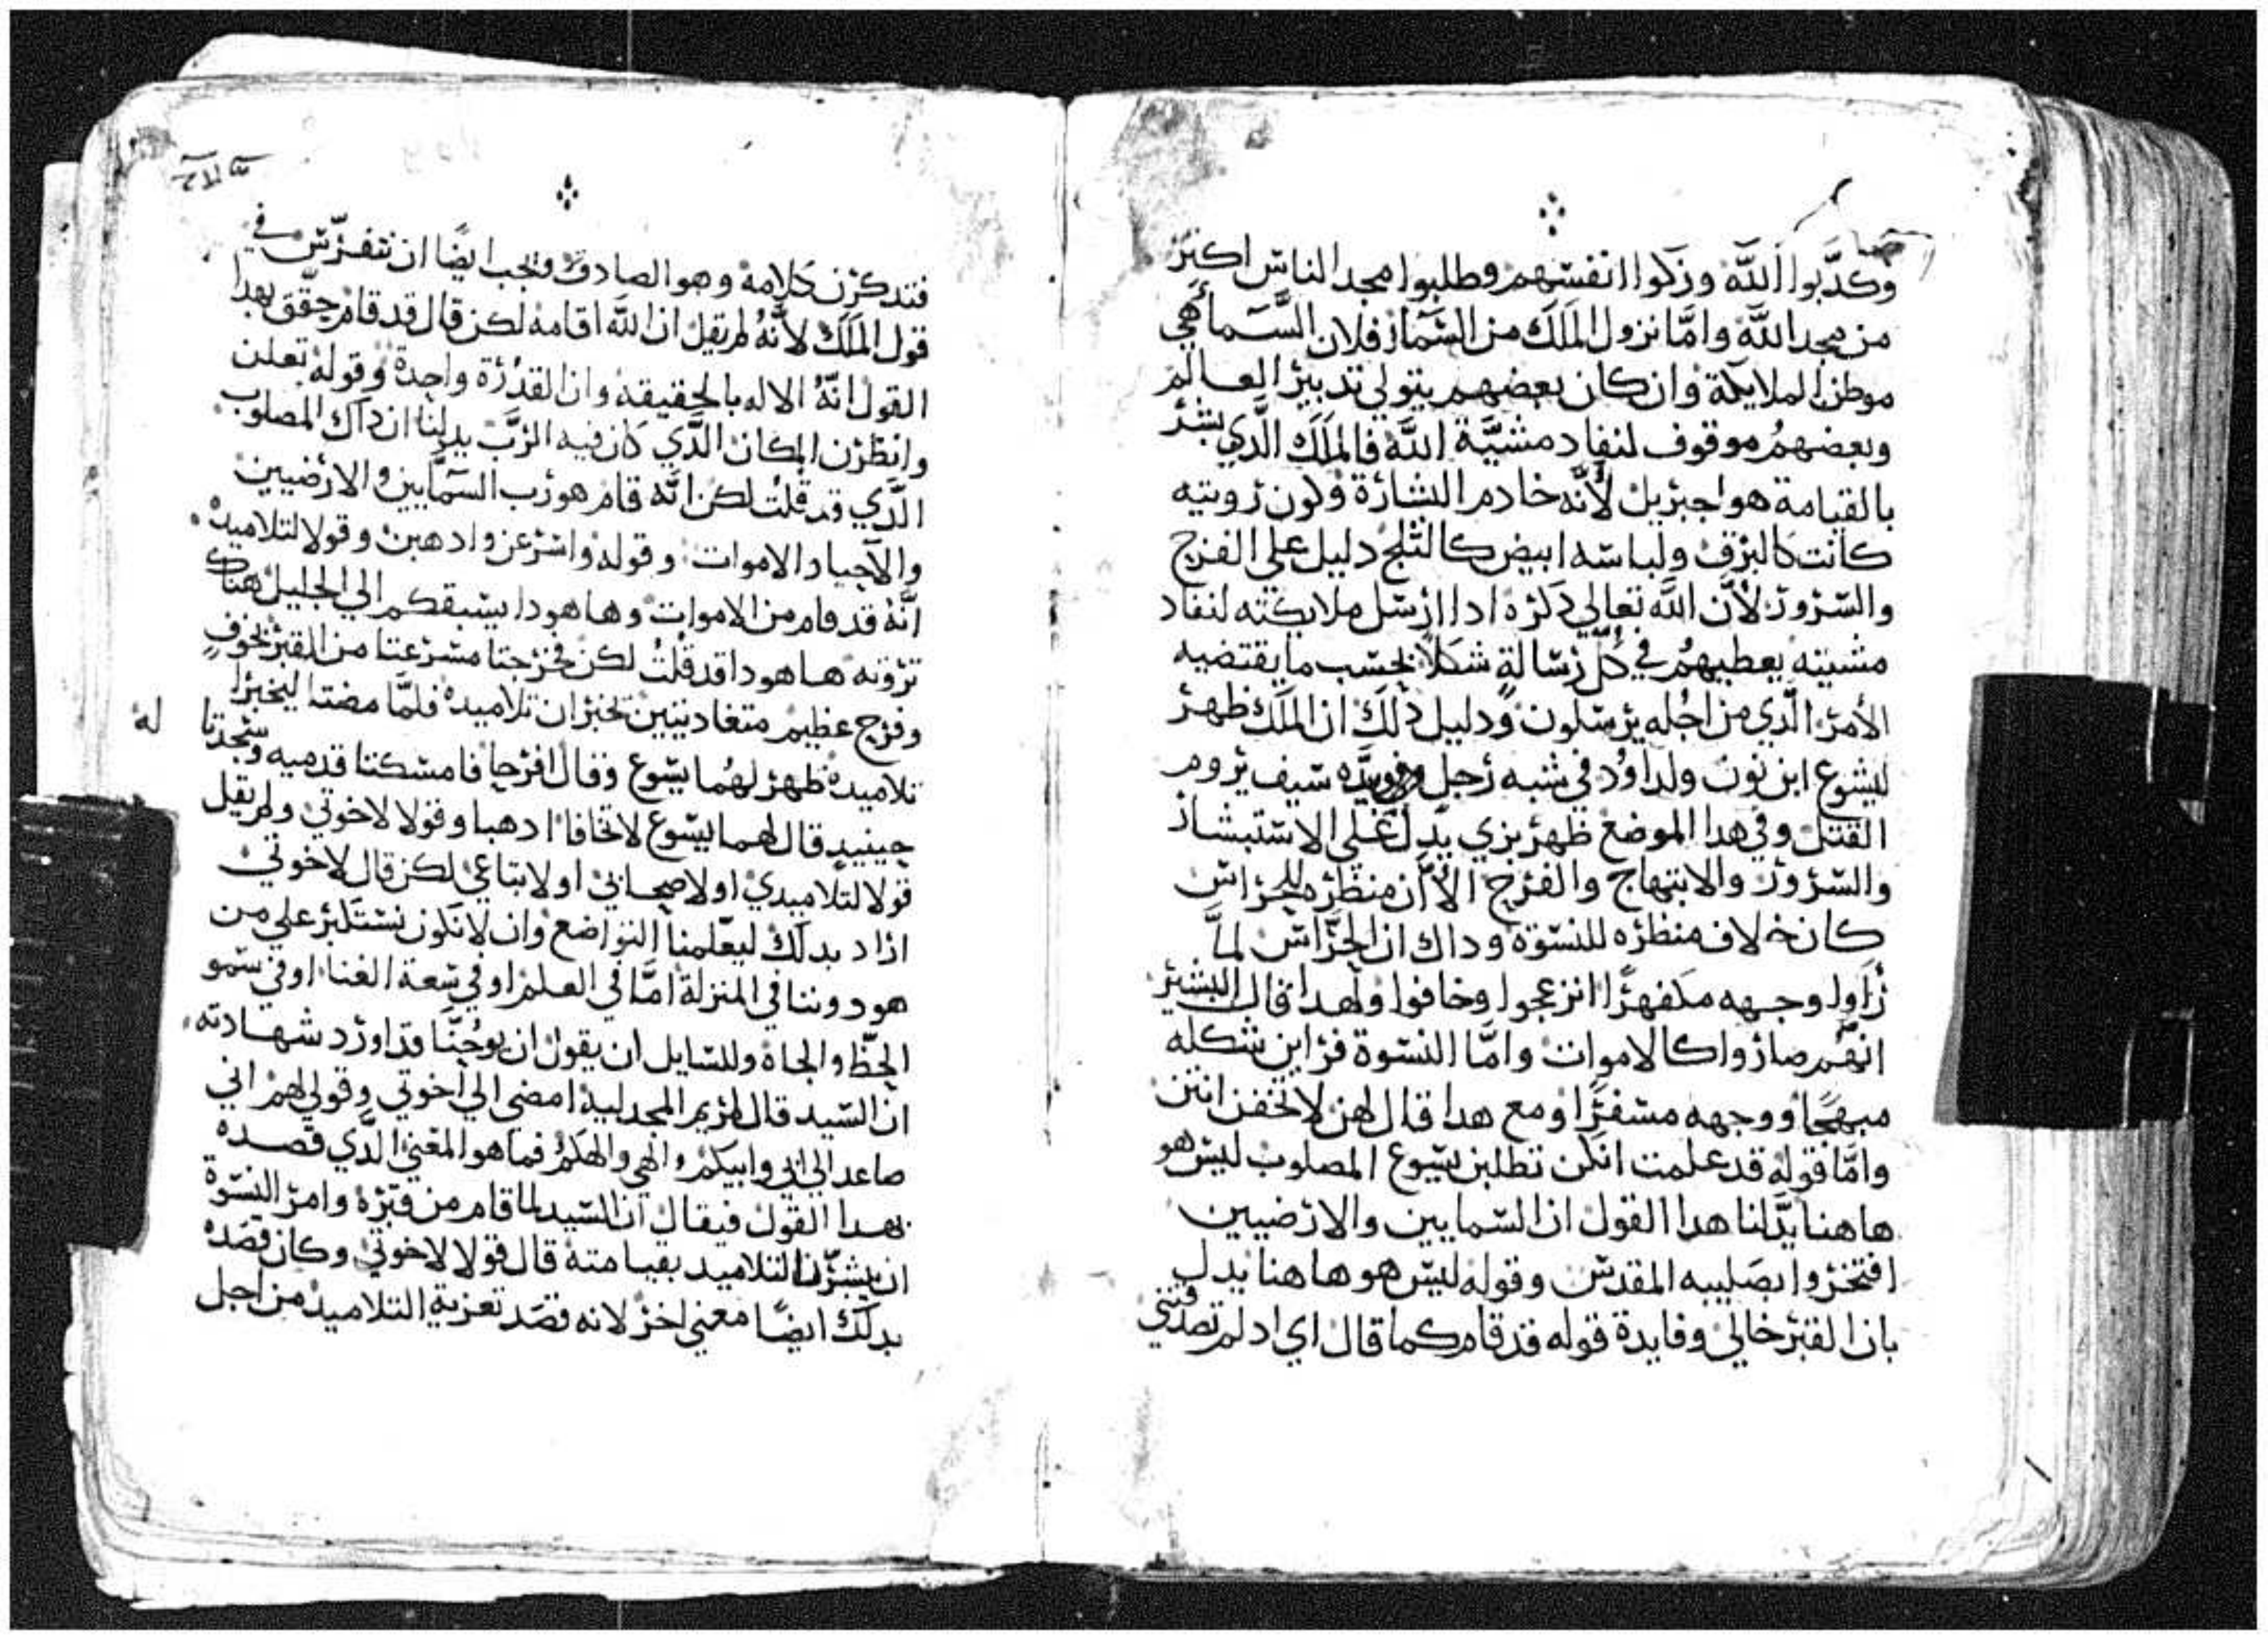 وكدَّبوا اللَّه وزكوا انفسهم وطلبوا مجد الناس اكتر
من مجد اللَّه وامَّا نزول الملَك من السَّما فلان السَّما هي
موطن الملايكة وان كان بعضهم يتولي تدبير العالم
وبعضهم موقوف لنفاد مشيَّة اللَّه فالملَك الَّدي بشر
بالقيامة هو اجبريل لأنَّه خادم البشارة وكون رويته
كانت كالبرق ولباسه ابيض كالتلج دليل علي الفرح
والسرور لأن اللَّه تعالي دكره ادا ارسل ملايكته لنفاد
مشيته يعطيهم في كلّ رسالةٍ شكلاً بحسب ما يقتضيه
الأمر الَّدي من اجله يرسلون ودليل دلك ان الملَك ظهر
ليشوع ابن نون ولداوُد في شبه رجل وفي يده سيف يروم
القتل وفي هدا الموضع ظهر بزي يدل علي الاستبشار
والسرور والابتهاج والفرح الاَّ أن منظره للحراس
كان خلاف منظره للنسوة وداك ان الحرَّاس لمَّا
رَاوا وجهه مكفهرًا انزعجوا وخافوا ولهدا قال البشير
انهُم صاروا كالاموات وامَّا النسوة فراين شكله
مبهجًا ووجهه مسفرًا ومع هدا قال لهن لا تخفن انتن
وامَّا قوله قد علمت انكن تطلبن يسوع المصلوب ليس هو
هاهنا يدَّلنا هدا القول ان السمايين والارضيين
افتخروا بصَليبه المقدس وقوله ليس هو هاهنا يدل
بان القبر خالي وفايدة قوله قد قام كما قال اي اد لم تصدقنني
فتدكرن كلامه وهو الصادق ويجب ايضًا ان نتفرّس في
قول الملَك لأنَّهُ لم يقل ان اللَّه اقامه لكن قال قد قام حقّق بهدا
القول انَّهُ الاله بالحقيقه وان القدُرة واحدة وقوله تعلن
وانظرن المكان الَّدي كان فيه الربَّ يدلنا ان داك المصلوب
الَّدي قد قلت لكن انَّه قام هو رب السمَّايين والارضيين
والأحيا والاموات وقوله واسرعن وادهبن وقولا لتلاميده
انَّهُ قد قام من الاموات وها هودا يسبقكم الي الجليل هناك
ترونه ها هودا قد قلتُ لكن فخرجتا مسرعتا من القبر بخوفٍ
وفرح عظيم متعاديتين تخبران تلاميده فلمَّا مضتا ليخبرا
تلاميده ظهر لهُما يسوع وقال افرحا فامسكتا قدميه وسجدتا له
حينيدٍ قال لهما يسوع لا تخافا ادهبا وقولا لاخوتي ولم يقل
قولا لتلاميدي او لاصحابي او لاتباعي لكن قال لاخوتي
اراد بدلك ليعّلمنا التواضع وان لا نكون نستكبر علي من
هو دوننا في المنزلة امَّا في العلم او في سعة الغنا او في سمو
الحظّ والجاه وللسايل ان يقول ان يوحنَّا قد اورد شهادته
ان السّيد قال لمريم المجدليه امضي الي اخوتي وقولي لهم اني
صاعد الي ابي وابيكم والهي والهكمُ فما هو المعني الَّدي قصده
بهدا القول فيقال ان السّيد لما قام من قبره وامر النسوة
ان يبشرّن التلاميد بقيامته قال قولا لاخوتي وكان قصَده
بدلك ايضًا معني اخر لانه قصَد تعزية التلاميد من اجل